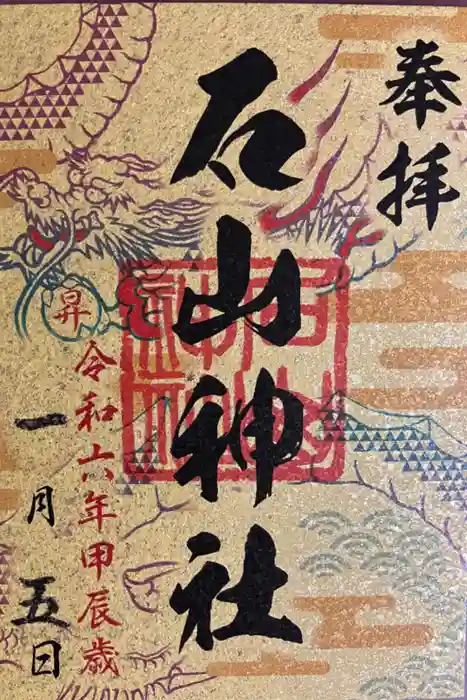 奉拝
石山神社
昇
令和六年甲辰歳
一月五日